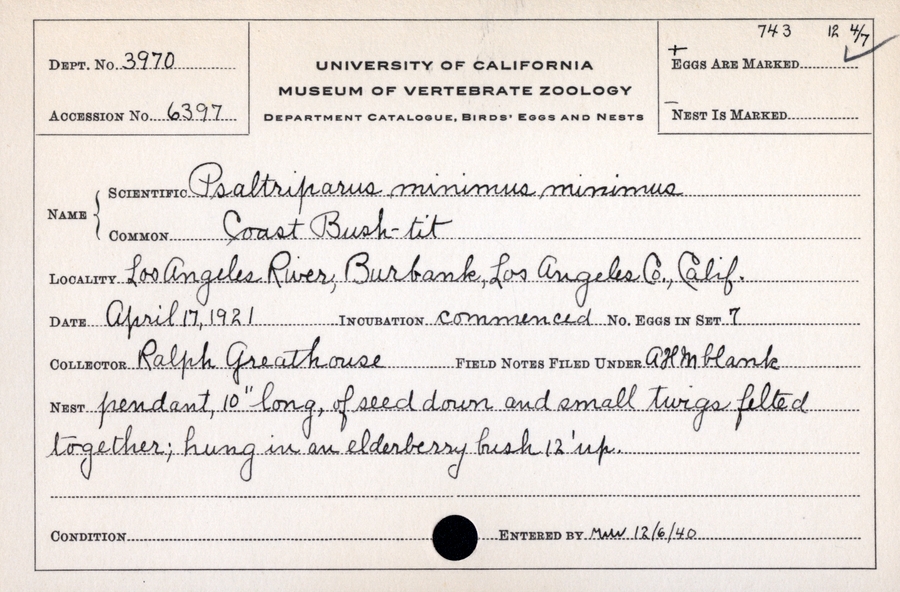 743 12 4/7
Dept. No. 3970
University of California
+ Eggs Are Marked
Museum of Vertebrate Zoology
Accession No. 6397
Department Catalogue, Birds' Eggs and Nests
– Nest Is Marked
Name { Scientific Psaltriparus minimus minimus
Common Coast Bush-tit
Locality Los Angeles River, Burbank, Los Angeles Co., Calif.
Date April 17, 1921 Incubation commenced No. Eggs in Set 7
Collector Ralph Greathouse Field Notes Filed Under AHM blank
Nest pendant, 10" long, of seed down and small twigs felted
together; hung in an elderberry bush 12' up.
Condition Entered by 12/6/40